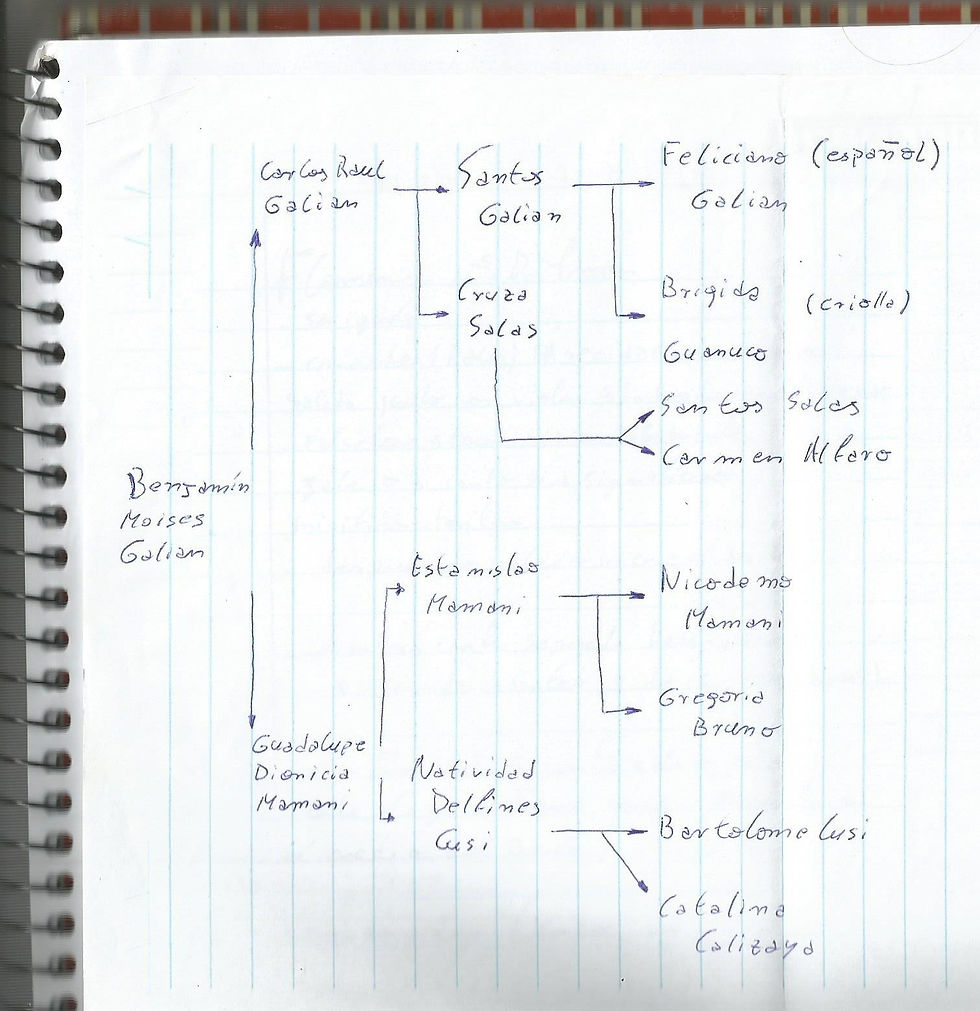 Carlos Raul
Galian
Santos
Galian
Feliciano (español)
Galian
Cruza
Salas
Brigida (criolla)
Guanuco
Santos Salas
Carmen Alfaro
Benjamín
Moises
Galian
Estanislao
Mamani
Nicodemo
Mamani
Gregoria
Bruno
Guadalupe
Dionicia
Mamani
Natividad
Delfines
Cusi
Bartolome Cusi
Catalina
Calizaya